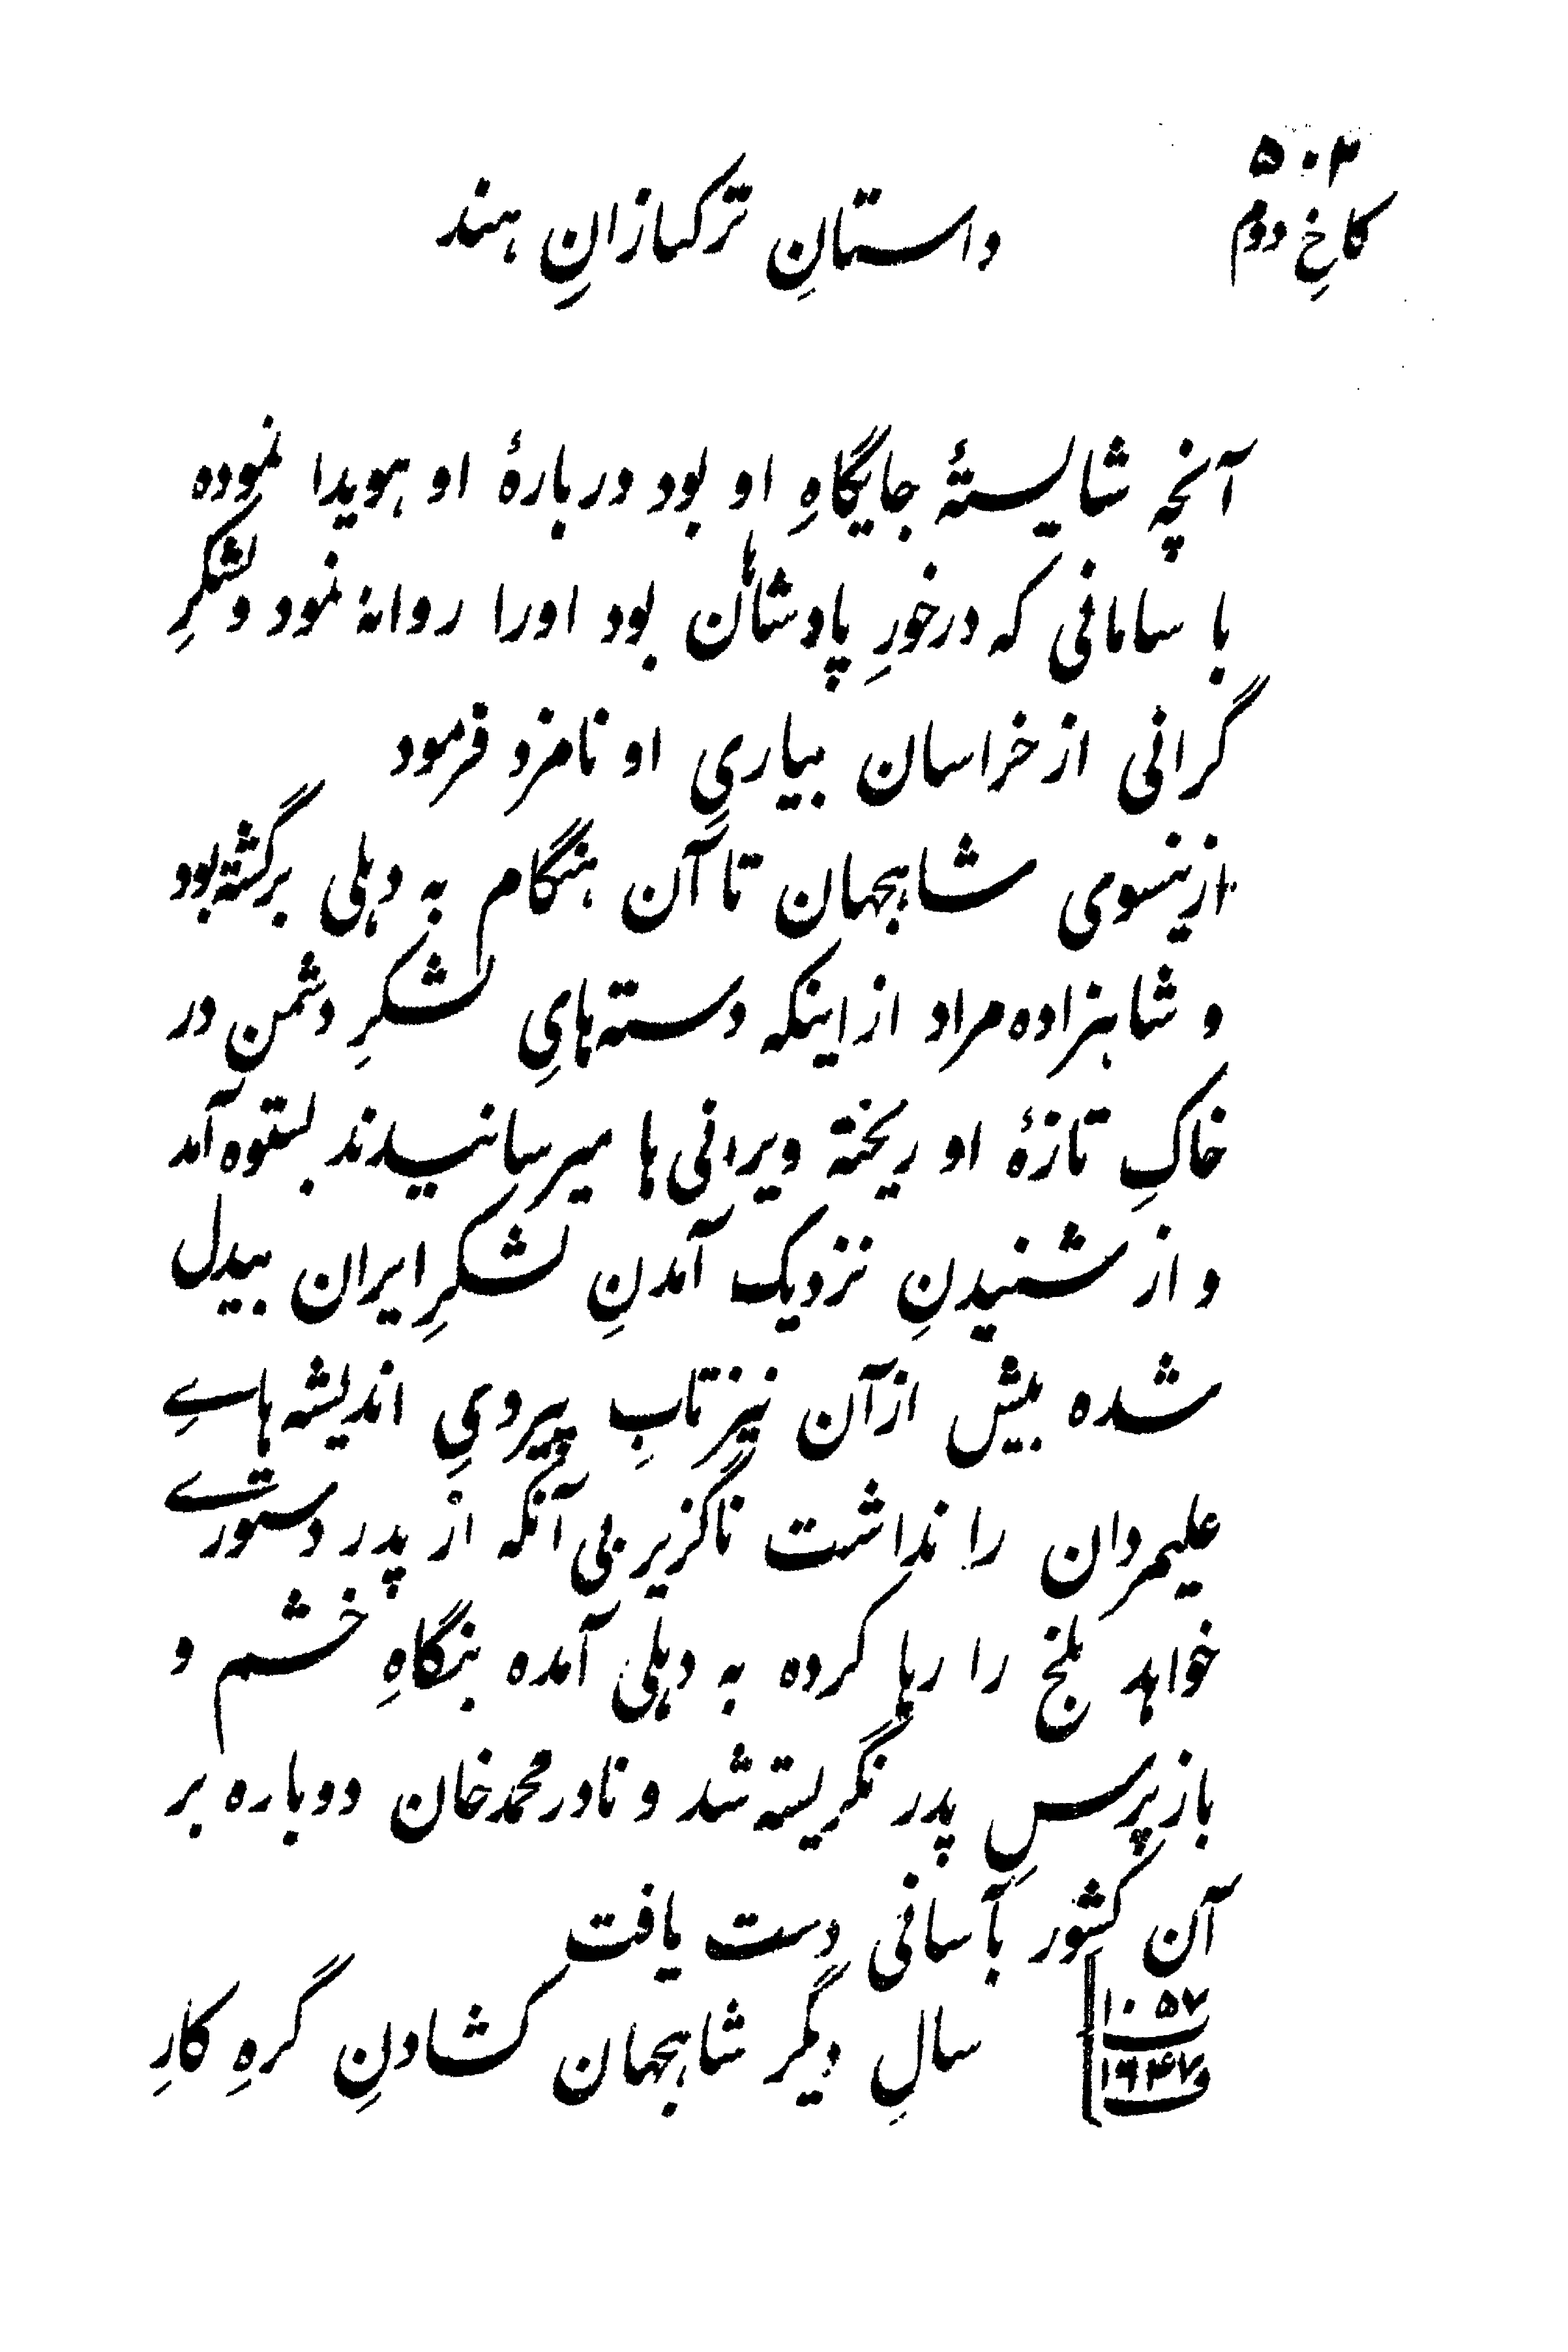 ۵۰۲
کاخِ دوم
داستانِ ترکتازانِ هند
آنچه شایستهٔ جایگاهِ او بود دربارهٔ او هویدا نموده
با سامانی که درخورِ پادشاهان بود اورا روانهٔ نمود و لشکرِ
گرانی از خراسان بیاریِ او نامزد فرمود
ازینسوی شاهجهان تا آن هنگام به دهلی برگشته بود
و شاهزاده مراد از اینکه دسته‌هایِ لشکرِ دشمن در
خاکِ تازهٔ او ریخته ویرانی‌ها میرسانیدند بستوه آمد
و از شنیدنِ نزدیک آمدنِ لشکرِ ایران بیدل
شده بیش ازآن نیز تابِ پیرویِ اندیشه‌هاےِ
علیمردان را نداشت ناگزیر بی آنکه از پدر دستورے
خواهد بلخ را رها کرده به دهلی آمده بنگاهِ خشم و
بازپرسِ پدر نگریسته شد و نادر محمد خان دوباره بر
آن کشور بآسانی دست یافت
۱۰۵۷
۱۶۴۷
سالِ دیگر شاهجهان کشادنِ گرهِ کارِ